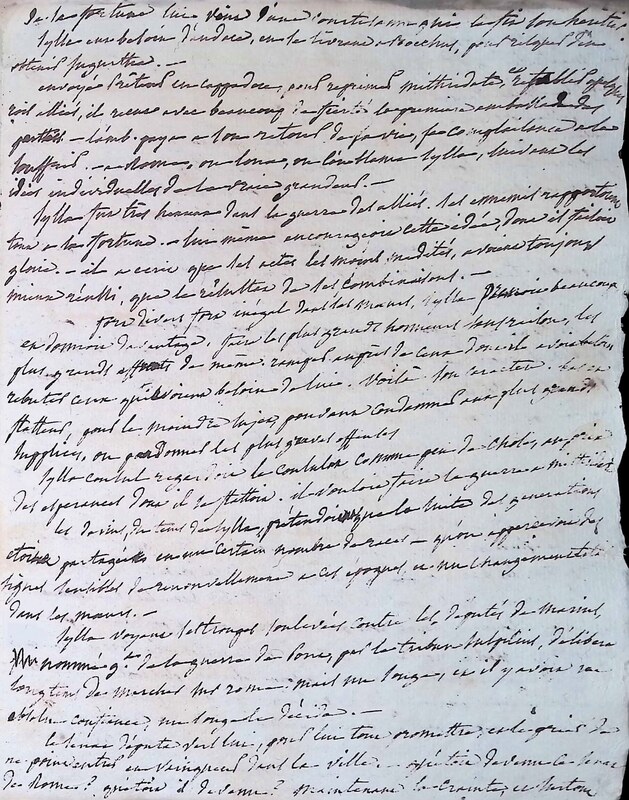 de la fortune lui vint d'une courtisane qui le fit son héritier
Sylla eut besoin d'audace, en se livrant a Bocchus, pour
obtenir Jugurtha. —
envoyé préteur en cappadoce, pour reprimer mithridate, et
rois alliés, il reçut avec beaucoup de fierté la premiere ambassade des
parthes — l'amb. paya a son retour de sa vie, sa complaisance a le
souffrir. — a Rome, on loua, on blama Sylla, suivant les
idées individuelles de la vraie grandeur. —
Sylla fut tres heureux dans la guerre des alliés. ses ennemis rapportoient
tout a la fortune. — lui même encourageoit cette idée, dont il faisoit
gloire. — il a ecrit que ses actes les moins médités, avoient toujours
mieux réussi, que le résultat de ses combinaisons. —
fort divers fort inegal dans ses mœurs, Sylla prenoit beaucoup
en donnoit davantage. faire les plus grands honneurs sans raison, les
plus grands affronts de même. ramper auprès de ceux dont il avoit besoin
rebuter ceux qui avoient besoin de lui. voilà son caractere.
flatteur, pour le moindre sujet, pouvant condamner aux plus grands
supplices, ou pardonner les plus graves offenses
Sylla consul regardoit le consulat comme peu de chose, au prix
des esperances dont il se flattoit. il vouloit faire la guerre a mithridate
les devins, du tems de Sylla, prétendoient que la suite des generations
etoient partagées en un certain nombre de races — qu'on appercevoit des
signes sensibles de renouvellement a ces epoques et un changement
dans les mœurs. —
Sylla voyant ses troupes soulevées contre les députés de marius,
nommé gal de la guerre de Pont, par le tribun sulpitius, délibera
longtems de marcher sur rome. mais un songe, et il y avoit
absolue confiance, un songe le décida. —
le senat députa vers lui, pour lui tout promettre, et le prier de
ne point entrer en vainqueur dans la ville. — qu'étoit devenu ce senat
de Rome? qu'étoit il devenu? maintenant la crainte, et surtout